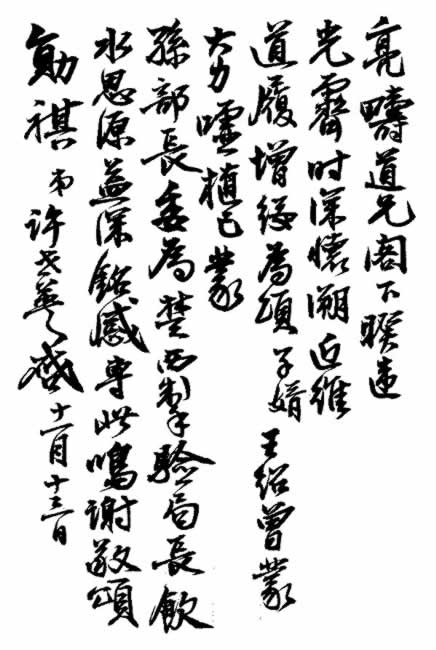 亮疇道兄閣下睽違
光霽时深懷溯近維
道履增綏為頌子婿王紹曾蒙
大力噓植已蒙
孫部長委為楚西掣驗局長飲
水思源益深銘感專此鳴謝敬頌
勛祺弟許世英啟十一月十三日